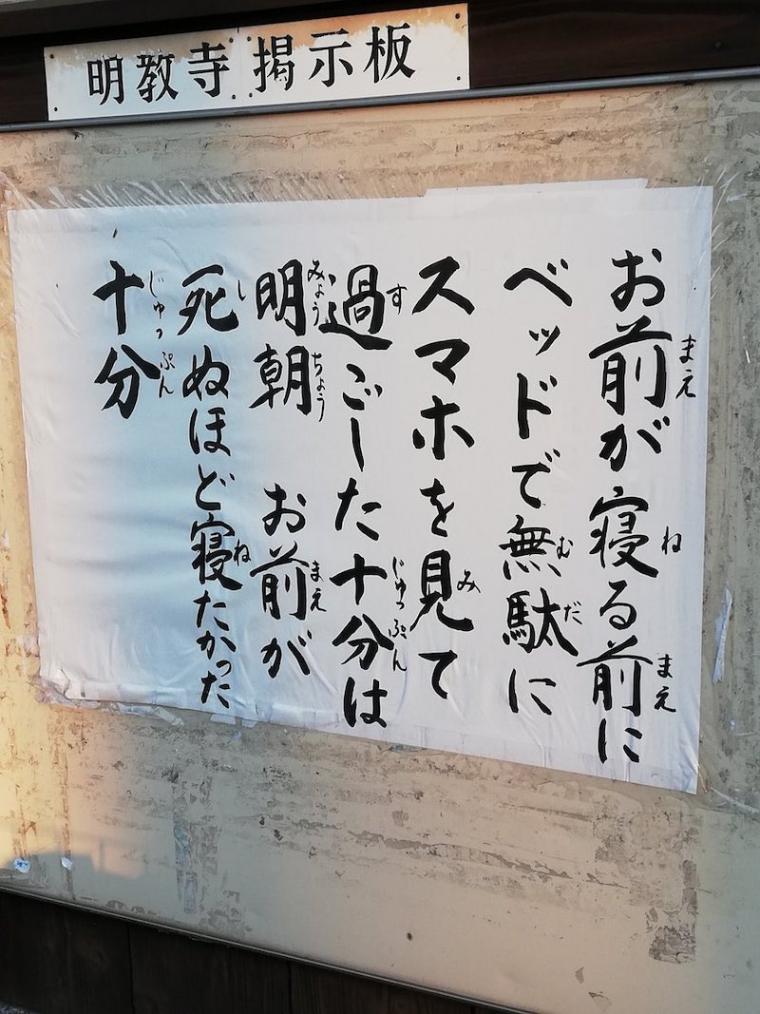 明教寺 掲示板
お前が寝る前に
まえ ね まえ
ベッドで無駄に
むだ
スマホを見て
み
過ごした十分は
す じゅっぷん
明朝 お前が
みょうちょう まえ
死ぬほど寝たかった
し ね
十分
じゅっぷん